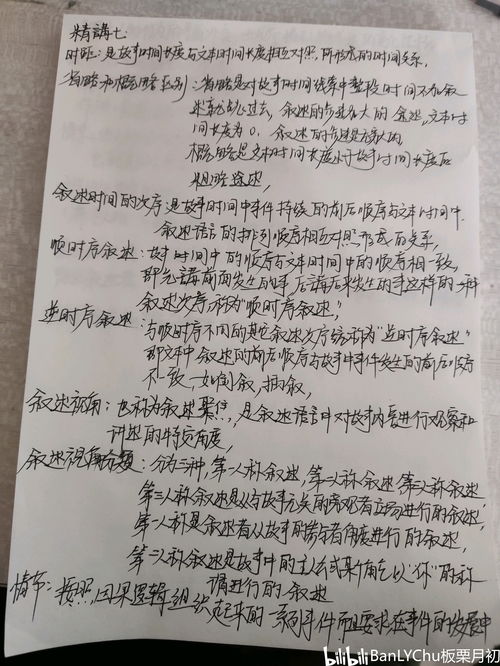 精講七:
时距:是故事时间长度与文本时间长度相互对照,所形成的时间关系,
省略和概略区别:省略是对故事时间线索中整段时间不加叙
述就跳过去,叙述的步是无限大的 文本时
间长度为0,叙述的步速是无限大的
概略是文本时间长度小于故事时间长度后
粗略叙述,
叙述时间的次序是故事时间中事件持续的前后顺序与文本时间中
叙述语言的排列顺序相互对照形成的关系,
顺时序叙述:故事时间中的顺序与文本时间中的顺序相一致,
即先讲前面发生的事后讲后来发生的事这样的一种
叙述次序,称为“顺时序叙述”,
逆时序叙述:与顺时序不同的其它叙述次序统称为“逆时序叙述”
即文本中叙述的前后顺序与故事中事件发生的前后顺序
不一致,如倒叙,插叙,
叙述视角:也称为叙述聚焦,是叙述语言中对故事内容进行观察和
讲述的特定角度,
叙述视角分类:分为三种,第一人称叙述,第二人称叙述 第三人称叙述
第三人称叙述是从与故事无关的旁观者立场进行的叙述,
第一人称是叙述者从故事的参与者角度进行的叙述,
第二人称叙述是故事中的主人公或某个角色以“你”的称
谓进行的叙述
情节:按照因果逻辑组织起来的一系列事件而且要求在事件的发展中
bilibili BanLYChu板栗月初